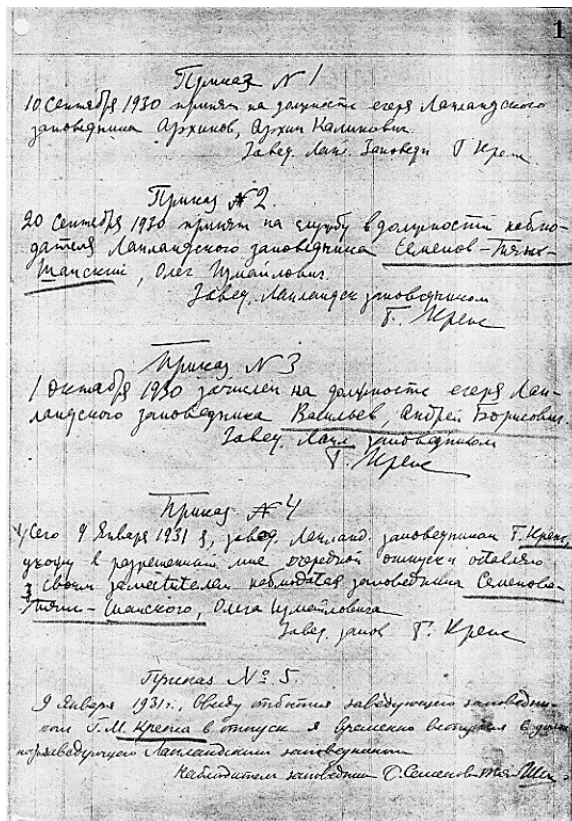 1
Приказ № 1
10 Сентября 1930 принят на должность егеря Лапландского
заповедника Архипов, Архип Каликович
Завед. Лап. Заповедн Г Крепс
Приказ № 2.
20 Сентября 1930 принят на службу в должности наблю-
дателя Лапландского заповедника Семенов-Тянь-
Шанский, Олег Измайлович.
Завед. Лапландск заповедником
Г. Крепс
Приказ № 3
1 Октября 1930 зачислен на должность егеря Лап-
ландского заповедника Васильев, Андрей Борисович.
Завед. Лапл заповедником
Г. Крепс
Приказ № 4
Сего 9 Января 1931 я, завед. Лапланд. заповедником Г. Крепс,
ухожу в разрешенный мне очередной отпуск и оставляю
своим заместителем наблюдателя заповедника Семенова-
Тянь-Шанского, Олега Измайловича
Завед. запов Г. Крепс
Приказ № 5.
9 Января 1931 г., Ввиду отбытия заведующего заповедни-
ком Г. М. Крепса в отпуск я временно вступил в
Лапландским заповедником
Наблюдатель заповедника О. Семенов-Тян-Шан